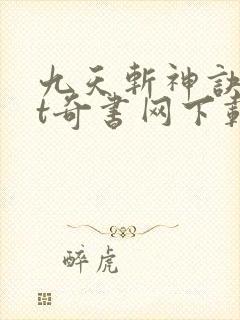 九天斬神訣
t奇書网下載
醉虎